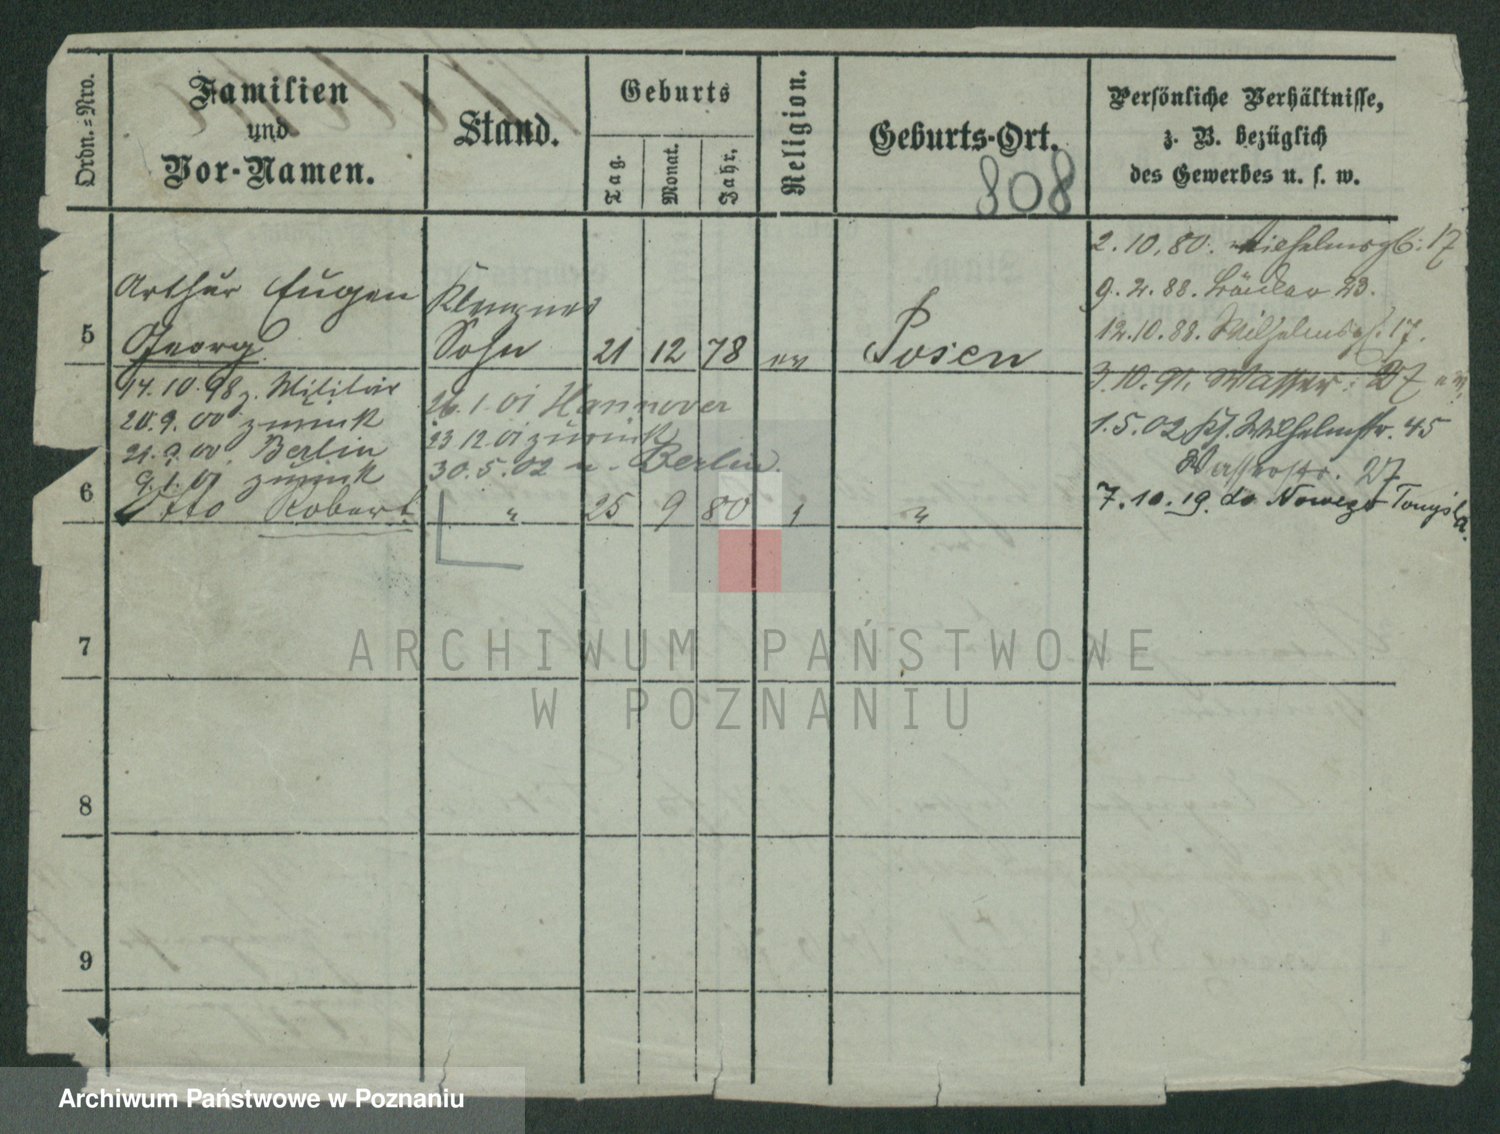 Ordn.=Nro.
Familien
und
Vor-Namen.
Stand.
Geburts
Tag.
Monat.
Jahr.
Religion.
Geburts-Ort.
808
Persönliche Verhältnisse,
z. B. bezüglich
des Gewerbes u. s. w.
5
Arthur Eugen
Georg
Klempners
Sohn
21 12 78 ev
Posen
14.10.98 z. Militär
20.9.00 zurück
21.9.00 Berlin
9.1.01 zurück
26.1.01 Hannover
23.12.01 zurück
30.5.02 n. Berlin
6
Otto Robert
" 25 9 80 "
2.10.80. Wilhelmspl. 17
9.2.88. 23.
12.10.88. Wilhelmspl. 17.
3.10.91. Wasser. 27
1.5.02 Wilhelmstr. 45
Wasserstr. 27
7.10.19. do Nowego Tomyśla.
7
8
9
ARCHIWUM PAŃSTWOWE
W POZNANIU
Archiwum Państwowe w Poznaniu